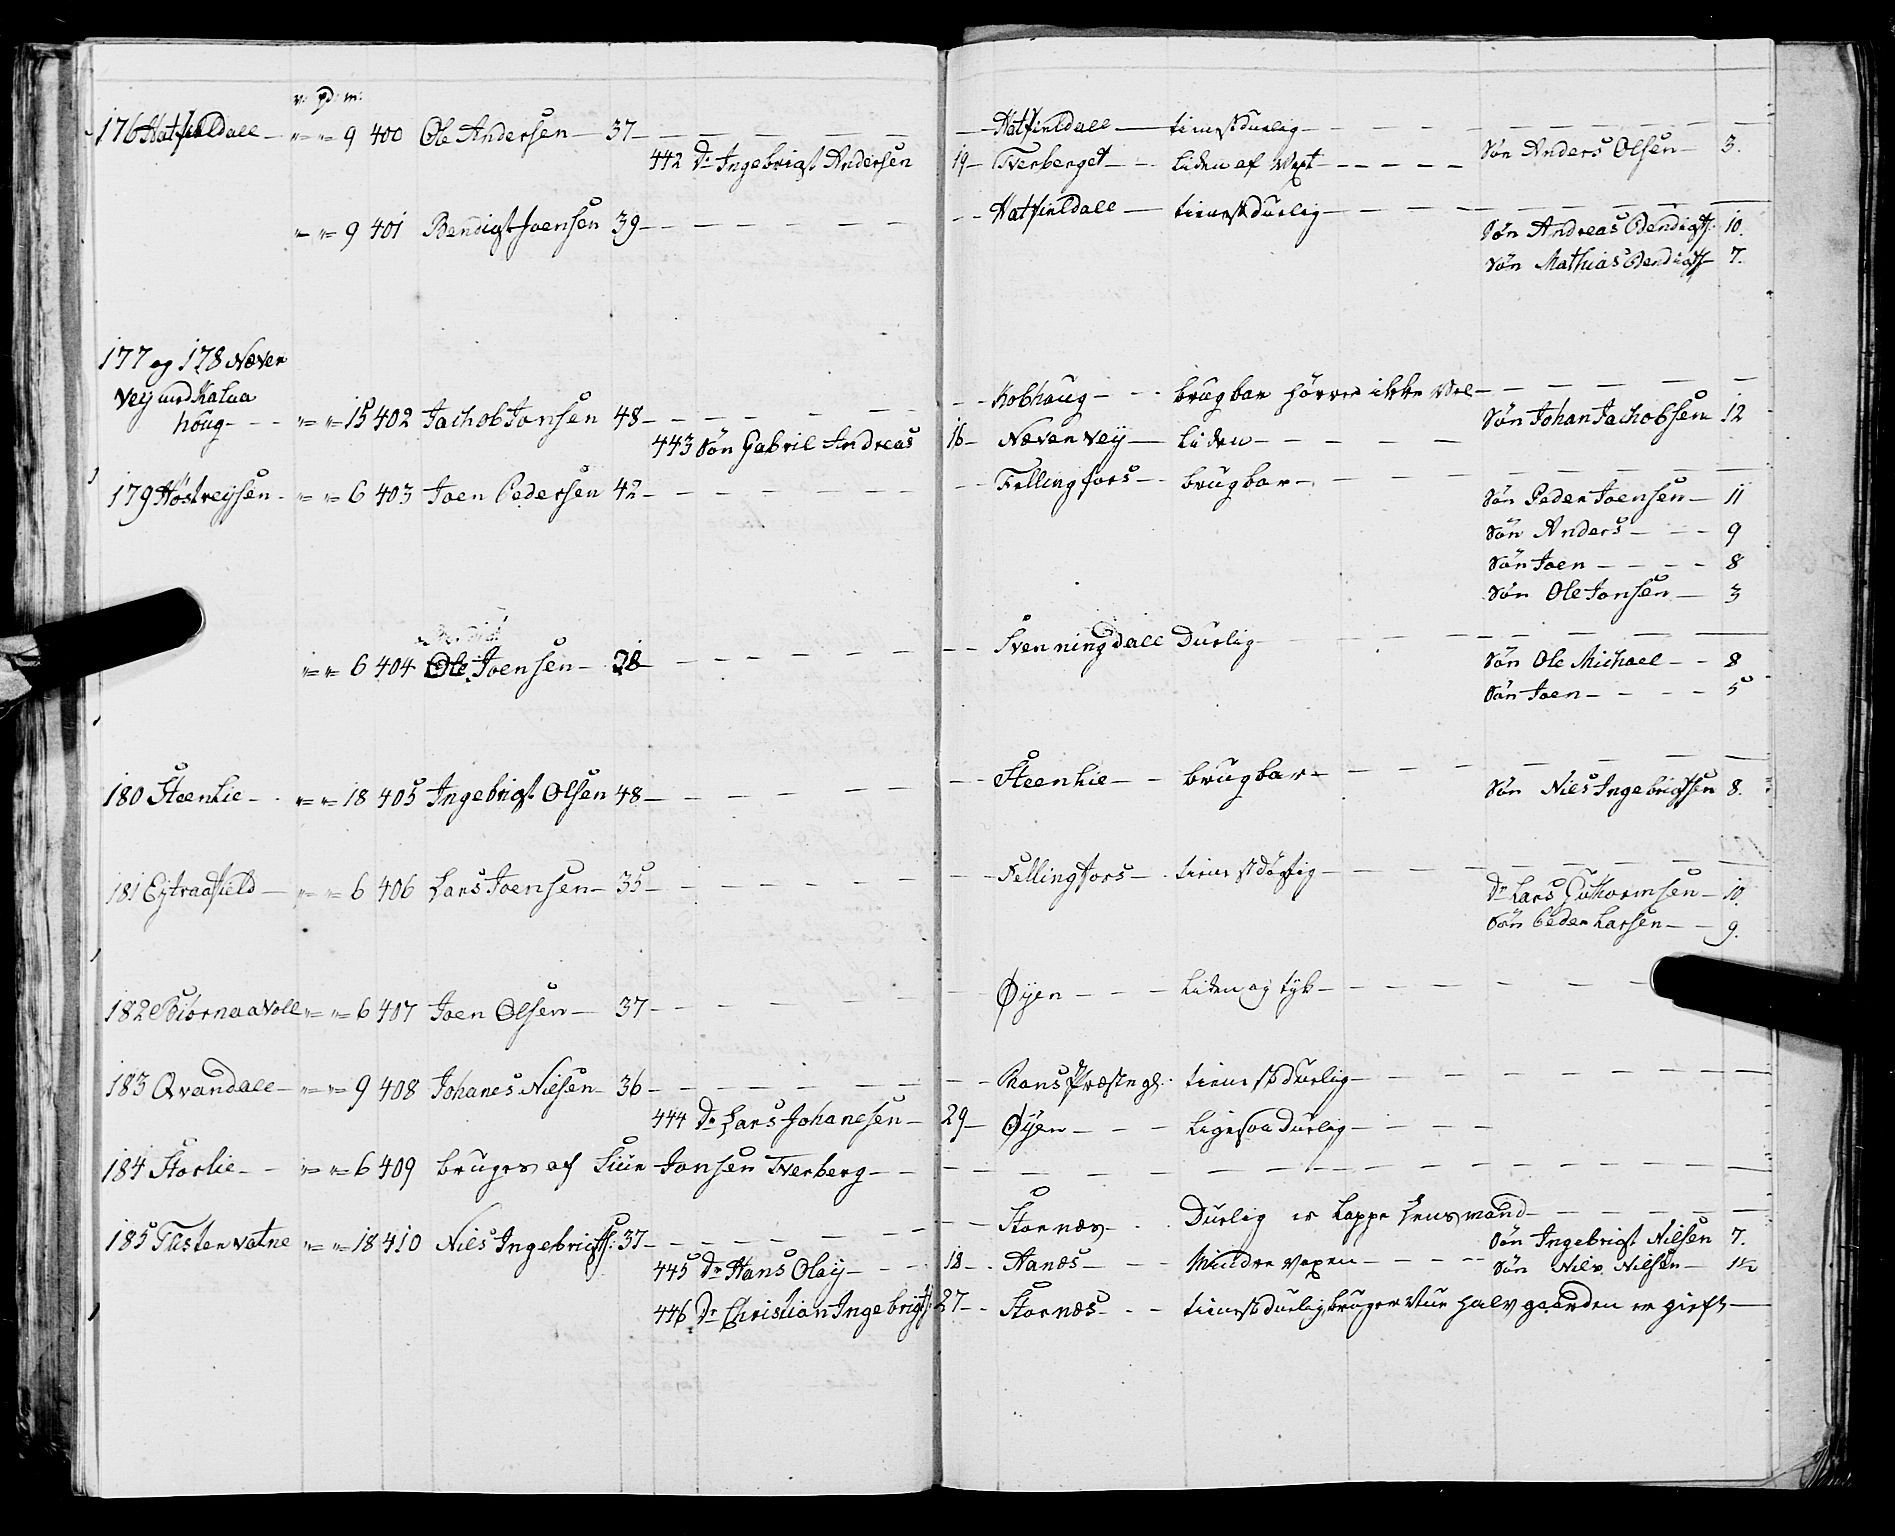 v: pd: m:
176 Hatfieldall — " " 9 400 Ole Andersen — 37 — — — Hatfieldall — tienstdurlig —
442 Dr Ingebrigt Andersen 19 — Tverberget — Liden af Vext — Søn Anders Olsen — 3.
" " 9 401 Bendigt Joensen 39 — — — Hatfieldall — tienstdurlig —
Søn Andreas Bendigts: 10.
Søn Mathias Bendigts 7.
177 og 178 Næver
Vey med Kalaa
houg — " " 15 402 Jachob Jonsen 48 — — — Kobhoug — brugbar hører ikke Vel —
Søn Johan Jachobsen 12
443 Søn Gabriel Andreas 16 — Næver Vey — Liden —
179 Høstreysen — " " 6 403 Joen Pedersen 42 — — — Fellingfors — brugbar —
Søn Peder Joensen — 11
Søn Anders — 9
Søn Joen — 8
Søn Ole Jonsen — 3
" " 6 404 Ole Joensen — 28 — — — Svenningdall Durlig —
Søn Ole Michael — 8
Søn Joen — 5
180 Steenlie — " " 18 405 Ingebrigt Olsen 48 — — — Steenlie — brugbar —
Søn Niels Ingebrigtsen 8.
181 Eytraafield — " " 6 406 Lars Joensen — 35 — — — Fellingfors — tienstdøgtig —
Dr Lars Guthormsen — 10.
Søn Peder Larsen — 9.
182 Biørnaavoll " " 6 407 Joen Olsen — 37 — — — Øyen — Liden og tyk —
183 Qvandall — " " 9 408 Johanes Nilsen — 36 — — — Rans Præstegl. tienstdurlig —
444 Dr Lars Johanesen — 29 — Øyen — Ligesaa Durlig —
184 Storlie — " " 6 409 bruges af Siur Jonsen Tverberg —
185 Tustervatne " " 18 410 Niels Ingebrigts: 37 — — — Stornæs — Durlig er Lappe Lensmand —
Søn Ingebrigt Nilsen 7.
445 Dr Hans Olay — 18 — Hanæs — Mindre Voxen — Søn Nils Nilsen — 1½
446 Dr Christian Ingebrigts: 27 — Stornæs — tienstdurlig bruger Siur halv gaarden er gieft —